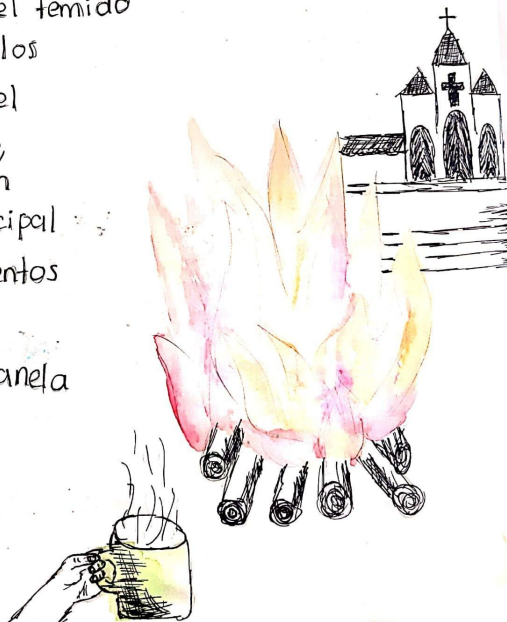 el temido
los
el
n
cipal
entos
anela